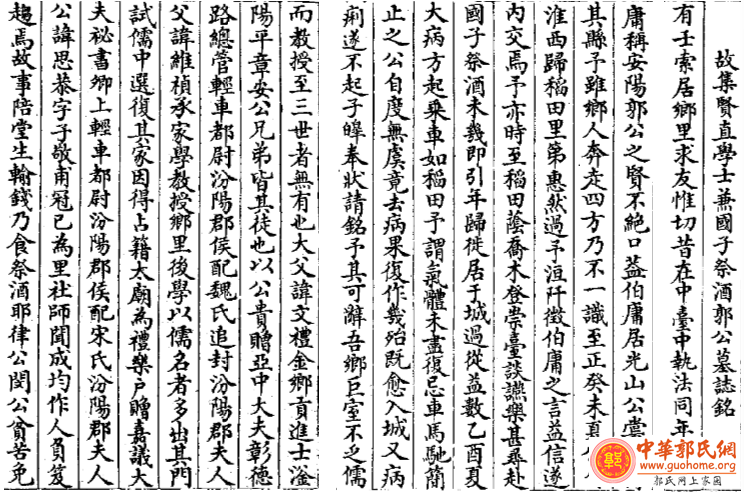 故集賢直學士兼國子祭酒郭公墓誌銘
有壬索居鄉里求友惟切昔在中臺中執法同年
庸稱安陽郭公之賢不絕口葢伯庸居光山公嘗
其縣予雖鄉人奔走四方乃不一識至正癸未夏
淮西歸稻田里第惠然過予洹阡徵伯庸之言益信遂
内交焉予亦時至稻田蔭喬木登崇臺談讌樂甚尋赴
國子祭酒未幾即引年歸徙居于城過從益數乙酉夏
大病方起乗車如稻田予謂氣體未盡復忌車馬馳簡
止之公自度無虞竟去病果復作幾殆既愈入城又病
痢遂不起子皥奉狀請銘予其可辭吾鄉巨室不乏儒
而教授至三世者無有也大父諱文禮金鄉貢進士滏
陽平章安公兄弟皆其徒也以公貴贈亞中大夫彰德
路總管輕車都尉汾陽郡侯配魏氏追封汾陽郡夫人
父諱維禎承家學教授鄉里後學以儒名者多出其門
試儒中選復其家因得占籍太廟為禮樂户贈嘉議大
夫祕書卿上輕車都尉汾陽郡侯配宋氏汾陽郡夫人
公諱思恭字子敬甫冠已為里社師聞成均作人負笈
趨焉故事陪堂生輸錢乃食祭酒耶律公閔公貧苦免
中華郭氏網
www.guohome.org
郭氏网上家园